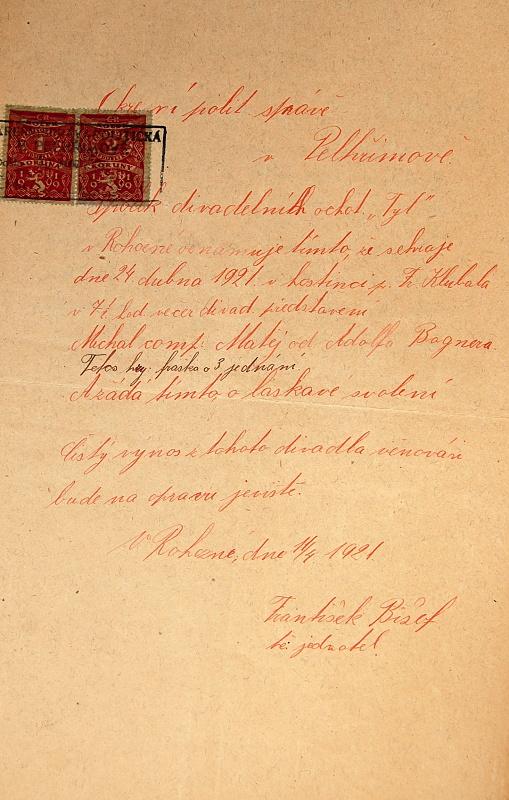 polit správě
v Pelhřimově.
Spolek divadelních ochot. „Tyl“
v Rohozné oznamuje tímto, že sehraje
dne 24 dubna 1921. v hostinci p. Fr. Klubala
v 7½ hod večer divad. představení
Michal comp. Matěj od Adolfa Bognera.
fraška o 3 jednání.
A žádá tímto, o láskavé svolení
Čistý výnos z tohoto divadla věnován
bude na opravu jeviště.
V Rohozné, dne 14/4 1921.
František
jednatel.